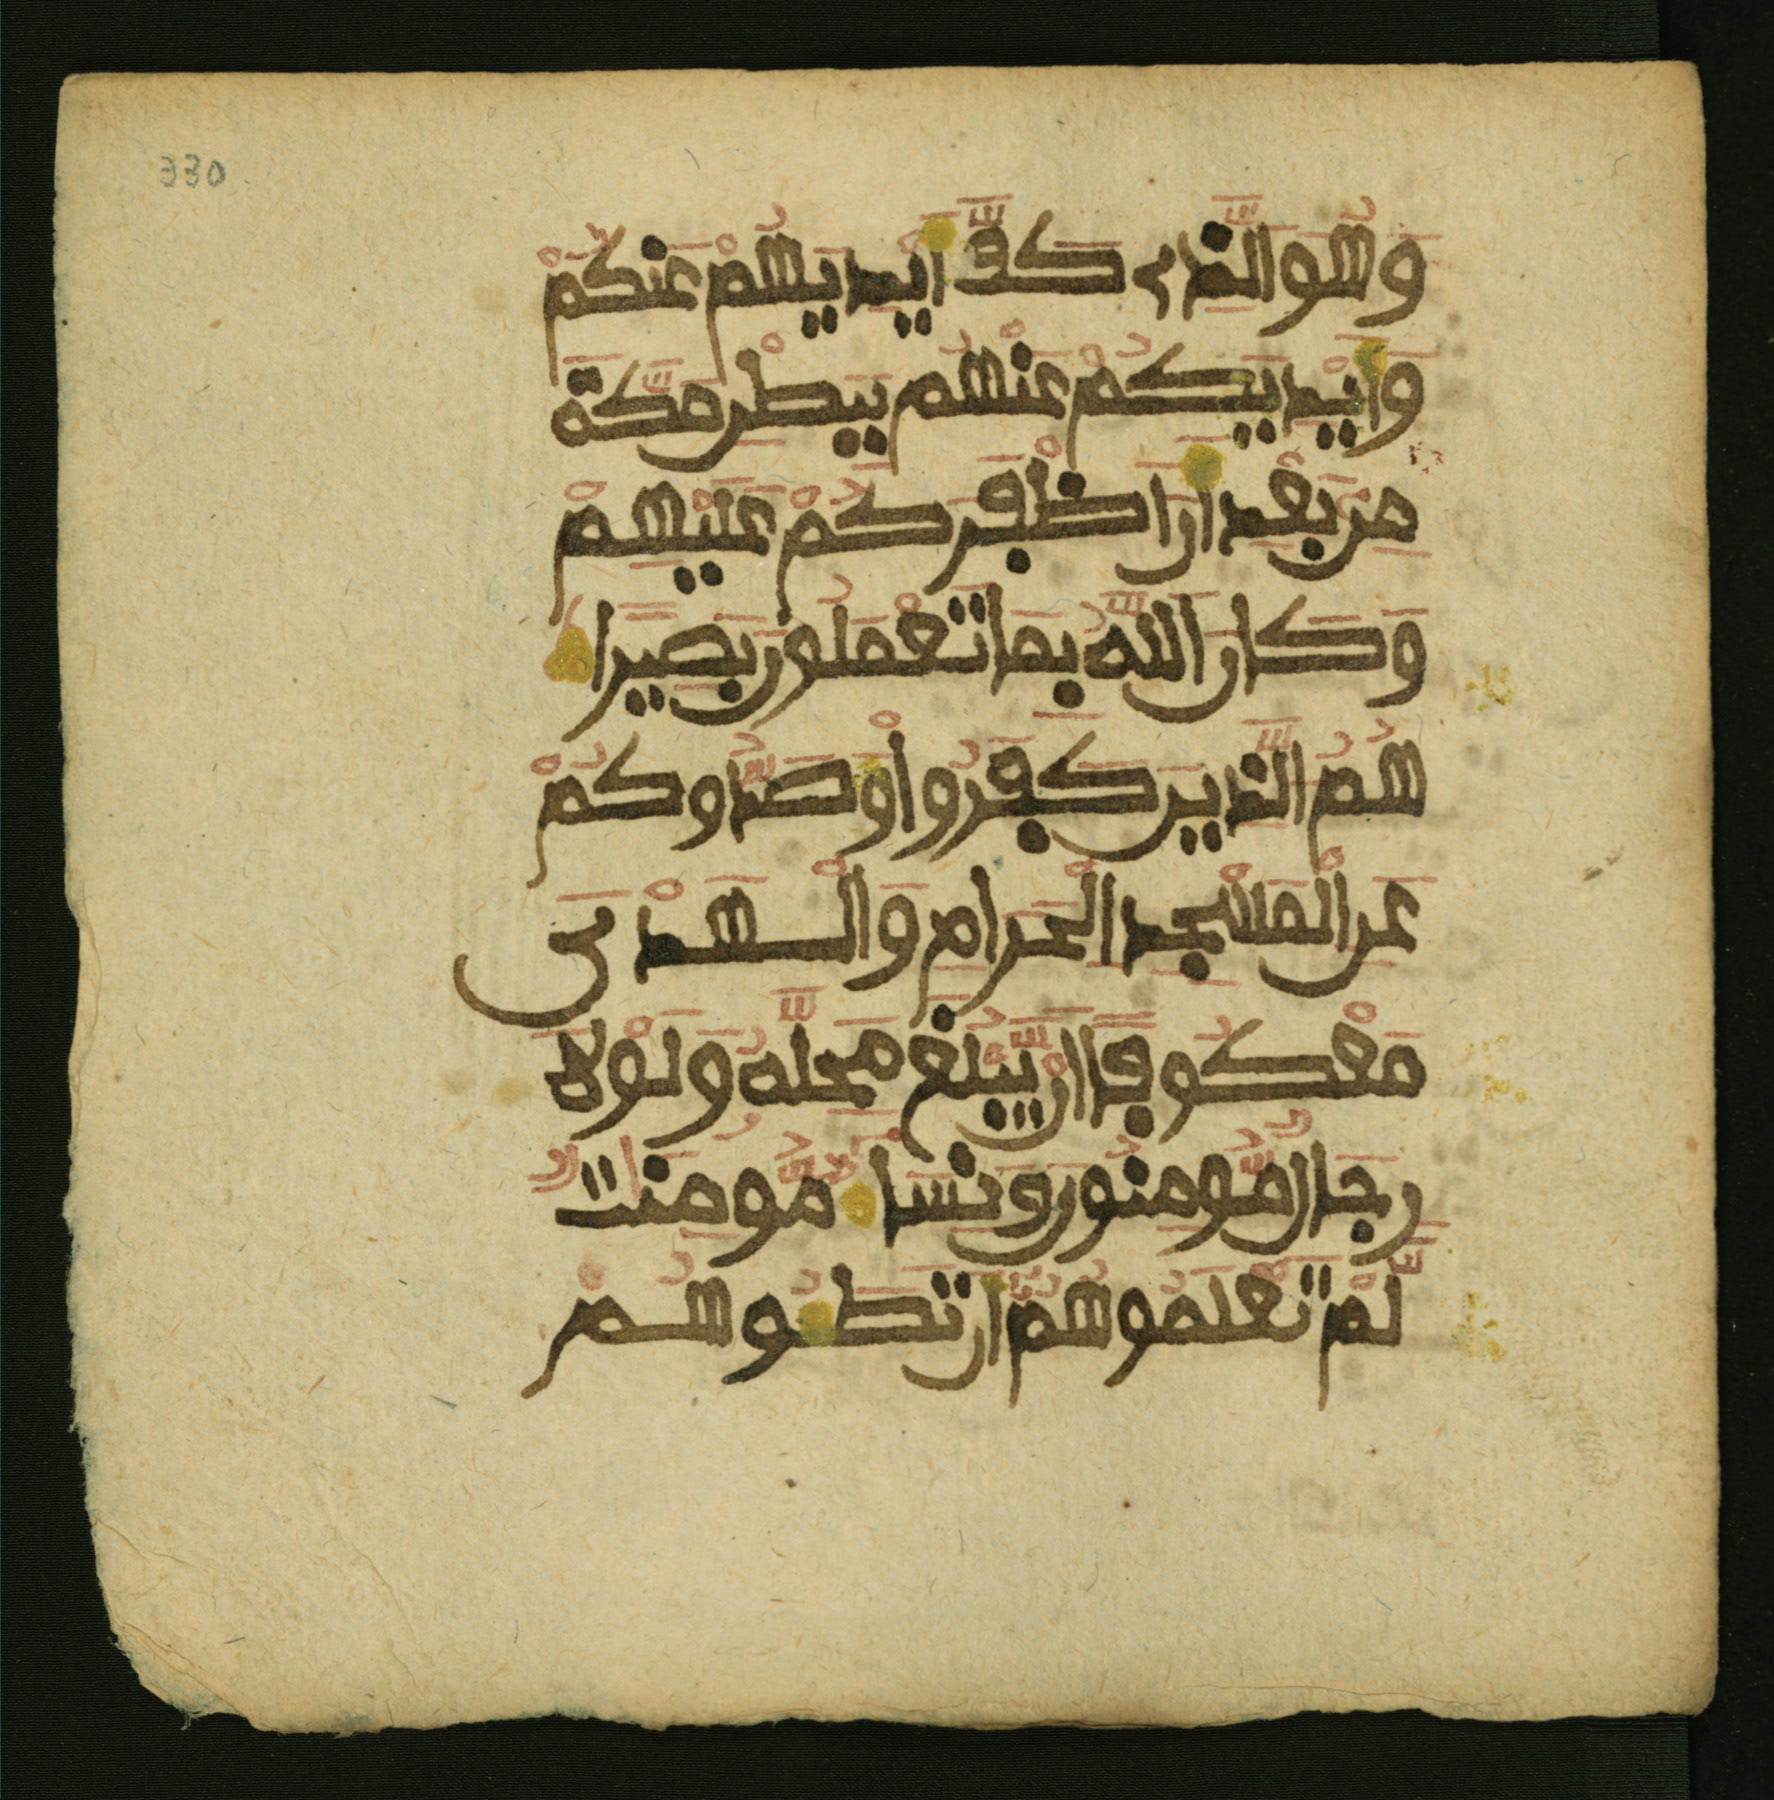 330
وَهُوَ الَّذِے كَفَّ أَيْدِيَهُمْ عَنكُمْ
وَأَيْدِيَكُمْ عَنْهُم بِبَطْنِ مَكَّةَ
مِنۢ بَعْدِ أَنَ اَظْفَرَكُمْ عَلَيْهِمْ
وَكَانَ اللَّهُ بِمَا تَعْمَلُونَ بَصِيراً
هُمُ الَّذِينَ كَفَرُواْ وَصَدُّوكُمْ
عَنِ الْمَسْجِدِ الْحَرَامِ وَالْهَدْىَ
مَعْكُوفاً اَنْ يَّبْلُغَ مَحِلَّهُ وَلَوْلَا
رِجَالٌ مُّومِنُونَ وَنِسَاءٌ مُّومِنَٰتٌ
لَّمْ تَعْلَمُوهُمُ أَن تَطَـُٔوهُمْ